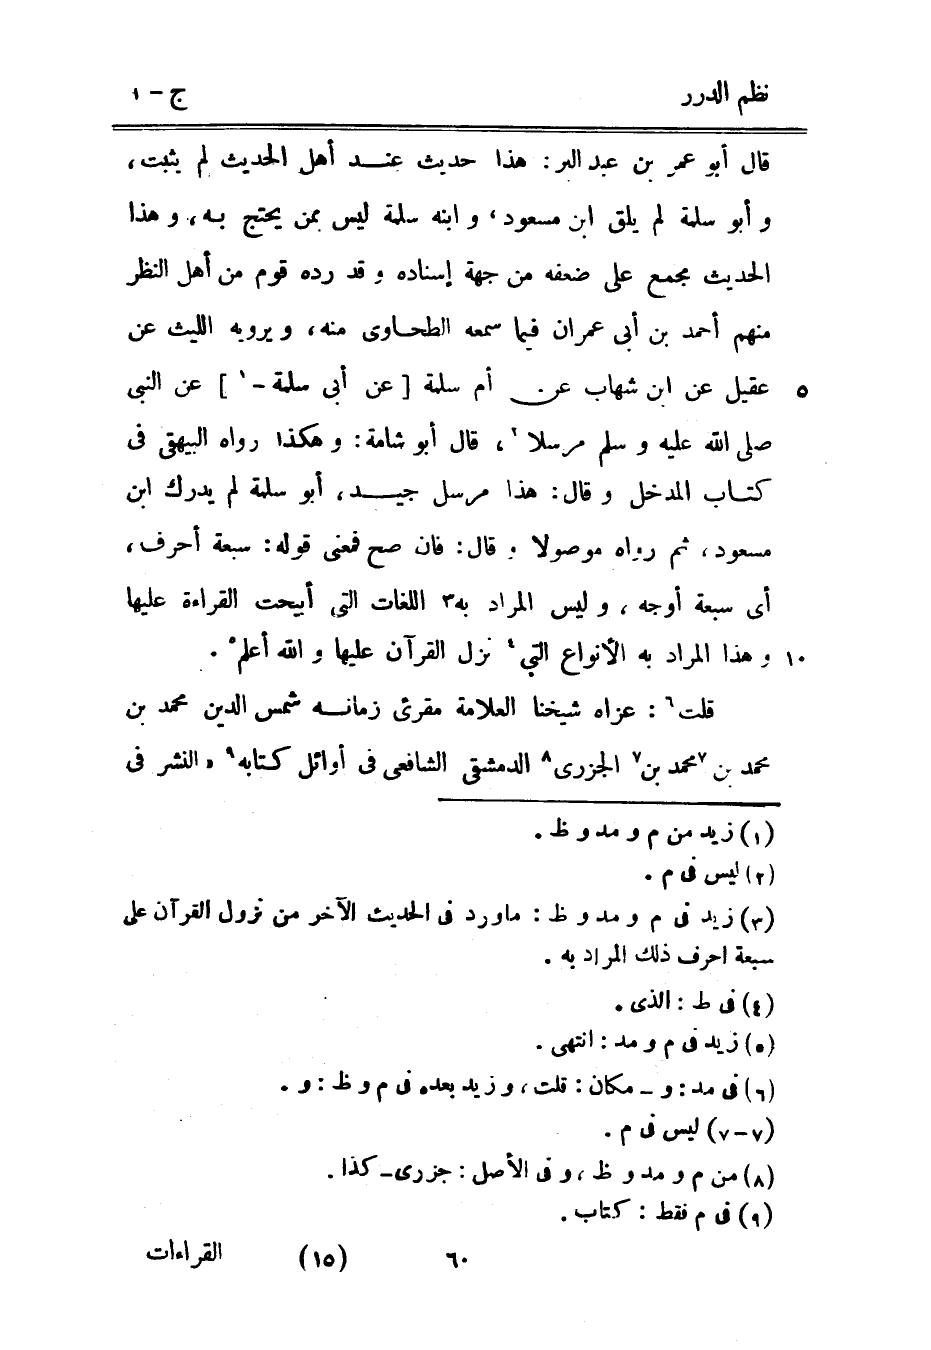 نظم الدرر ج - ١
قال أبو عمر بن عبد البر: هذا حديث عند أهل الحديث لم يثبت،
و أبو سلمة لم يلق ابن مسعود، و ابنه سلمة ليس ممن يحتج به، و هذا
الحديث مجمع على ضعفه من جهة إسناده و قد رده قوم من أهل النظر
منهم أحمد بن أبي عمران فيما سمعه الطحاوى منه، و يرويه الليث عن
٥ عقيل عن ابن شهاب عن أم سلمة [ عن أبى سلمة - ١ ] عن النبى
صلى الله عليه و سلم مرسلا ٢ ، قال أبو شامة: و هكذا رواه البيهقى فى
كتاب المدخل و قال: هذا مرسل جيد، أبو سلمة لم يدرك ابن
مسعود، ثم رواه موصولا و قال: فان صح فمعنى قوله: سبعة أحرف،
أى سبعة أوجه ، و ليس المراد به٣ اللغات التى أبيحت القراءة عليها
١٠ و هذا المراد به الأنواع التي٤ نزل القرآن عليها و الله أعلم٥ .
قلت٦ : عزاه شيخنا العلامة مقرئ زمانه شمس الدين محمد بن
محمد بن ٧محمد بن٧ الجزرى٨ الدمشقى الشافعى فى أوائل كتابه٩ « النشر فى
(١) زيد من م و مد و ظ .
(٢) ليس فى م .
(٣) زيد فى م و مد و ظ : ماورد فى الحديث الآخر من نزول القرآن على
سبعة احرف ذلك المراد به .
(٤) فى ظ : الذى .
(٥) زيد فى م و مد : انتهى .
(٦) فى مد : و - مكان : قلت ، و زيد بعده فى م و ظ : و .
(٧-٧) ليس فى م .
(٨) من م و مد و ظ ، و فى الأصل : جزرى - كذا .
(٩) فى م فقط : كتاب .
٦٠ (١٥) القراءات